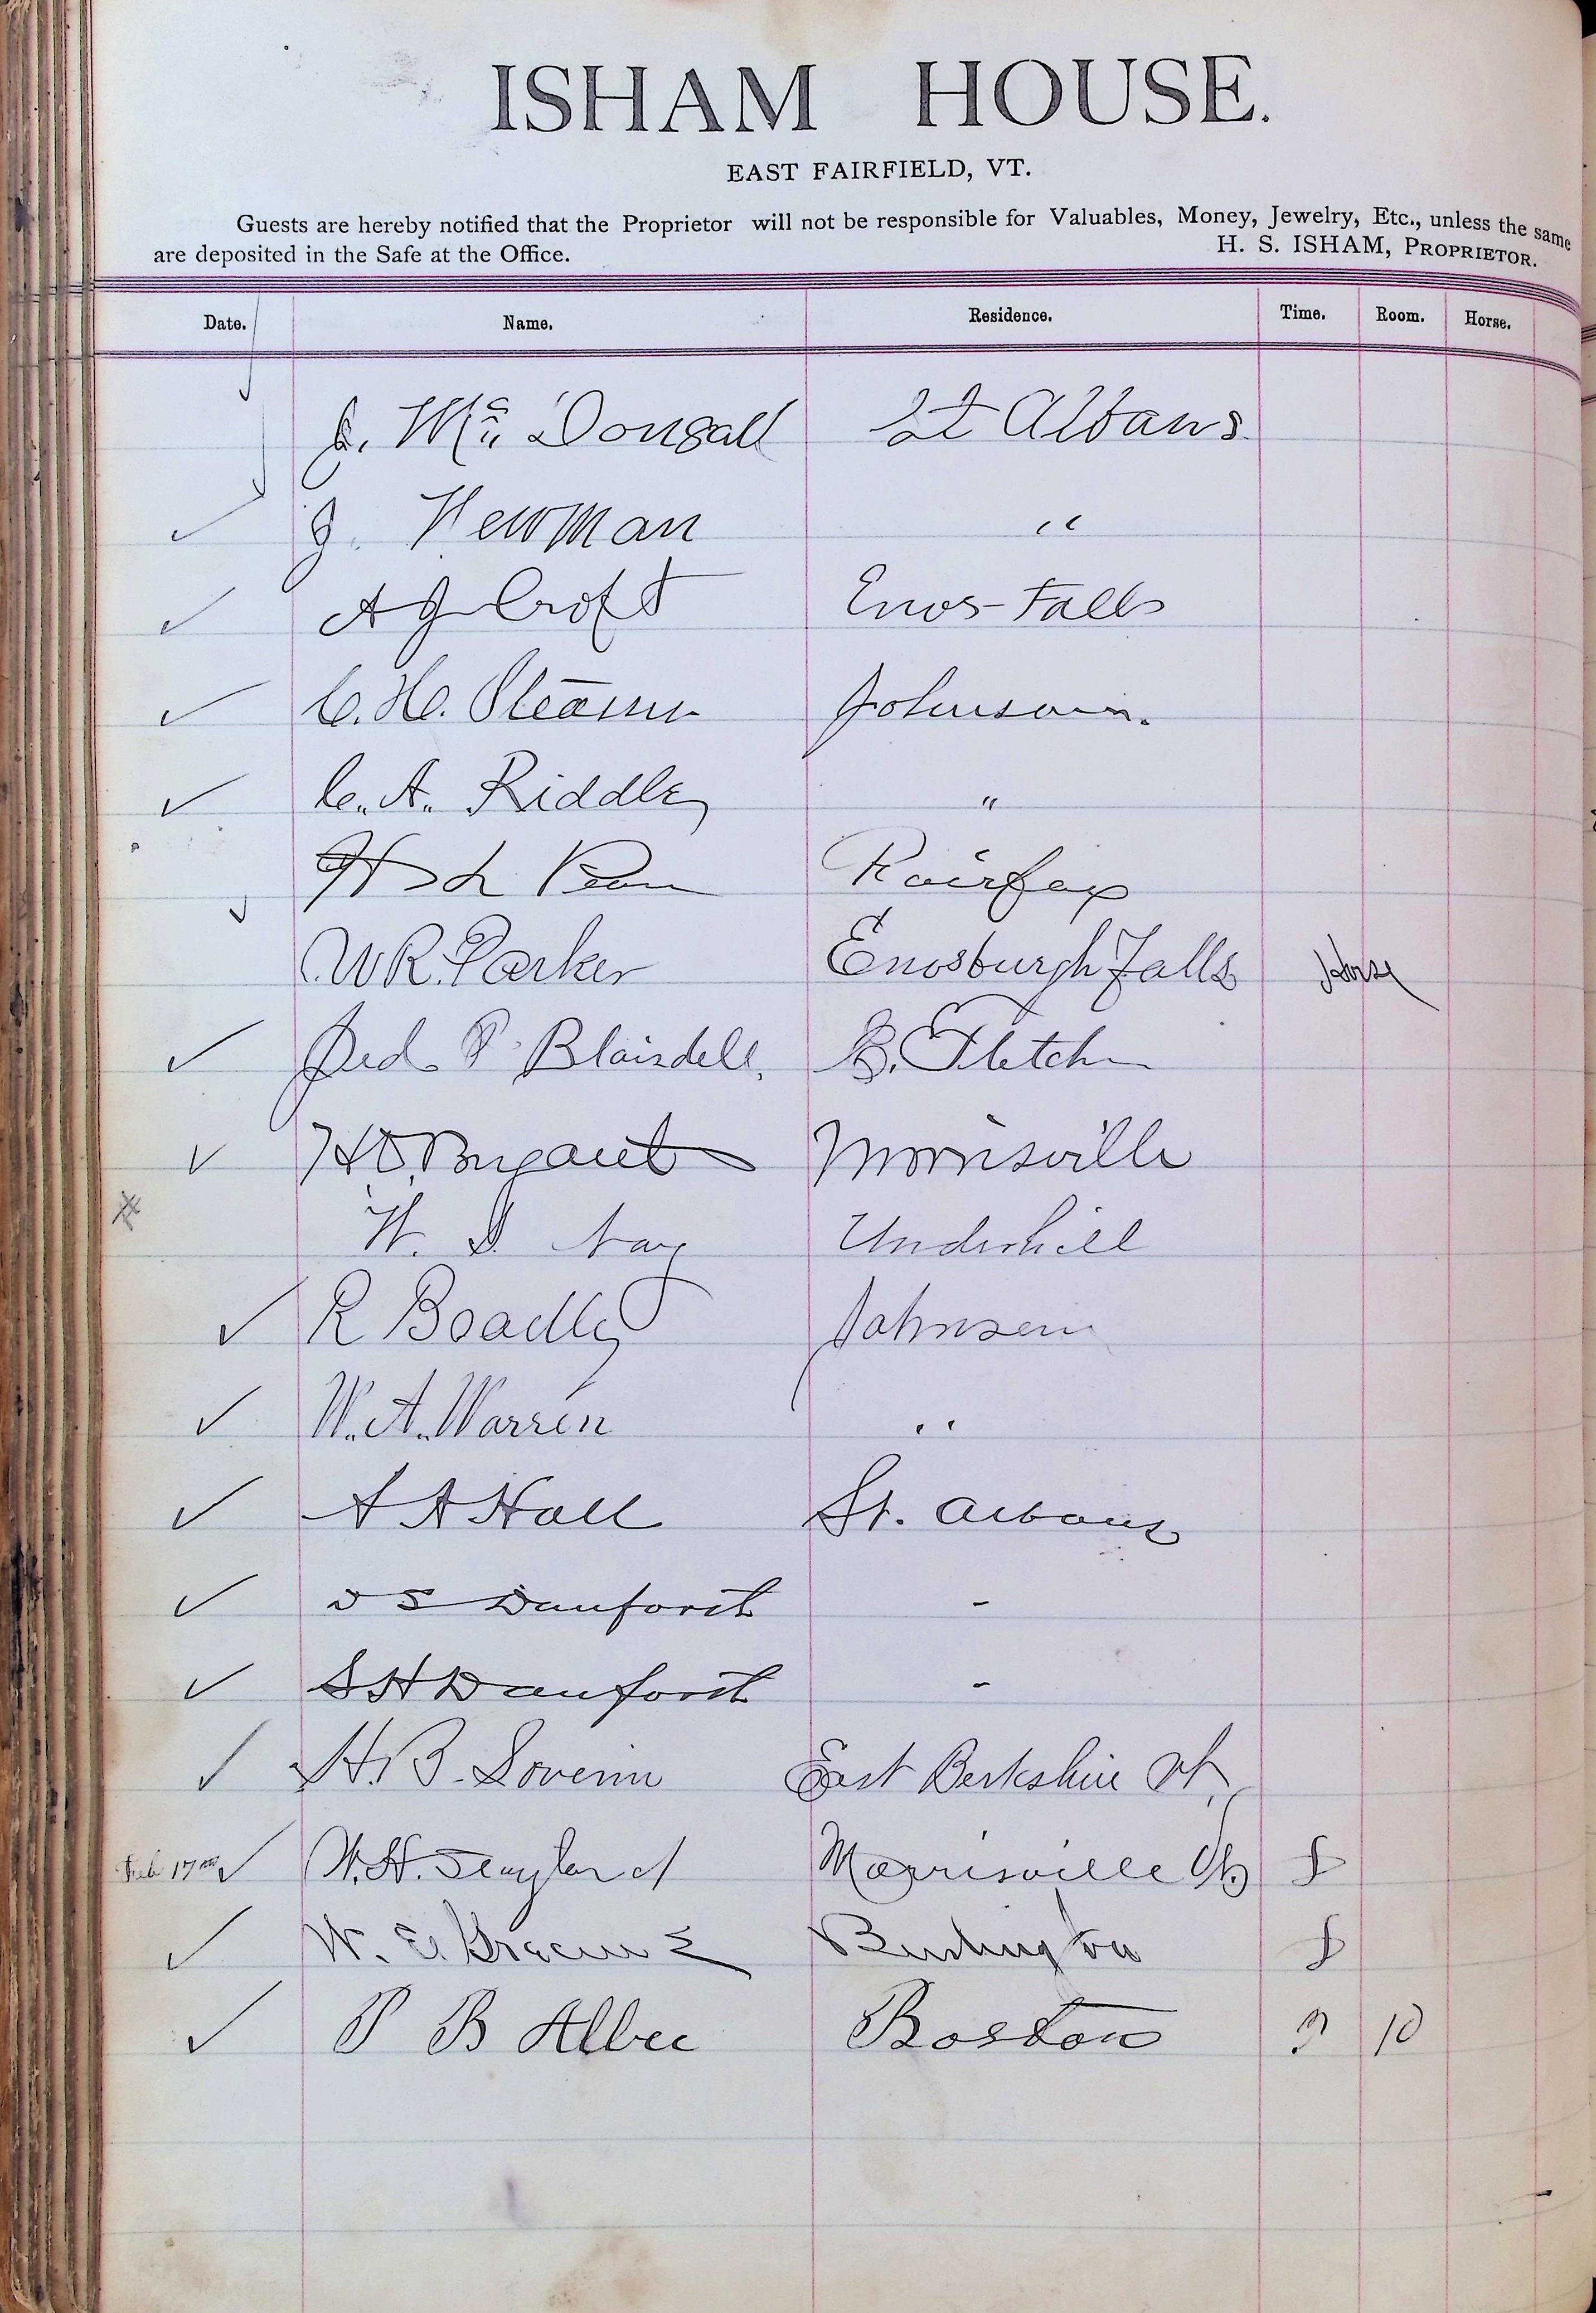 ISHAM HOUSE.
EAST FAIRFIELD, VT.
Guests are hereby notified that the Proprietor will not be responsible for Valuables, Money, Jewelry, Etc., unless the same
are deposited in the Safe at the Office. H. S. ISHAM, PROPRIETOR.
Date. Name. Residence. Time. Room. Horse.
J. Mc Dougall St Albans.
J. Newman "
A J Croft Enos-Falls
C. H. Stearns Johnson.
C. A. Riddle "
H L Fairfax
W R. Parker Enosburgh Falls Horse
Jed P Blaisdell. B. Fletcher
H D. Bryant Morrisville
W. S. Nay Underhill
R Boadley Johnson
W. A. Warren "
A A Hall St. Albans
D S Danforth -
S H Danforth -
H. B. Soverin East Berkshire Vt.
Feb 17th W. H. Morrisville Vt
W. E. Greene Burlington
P B Albee Boston 10